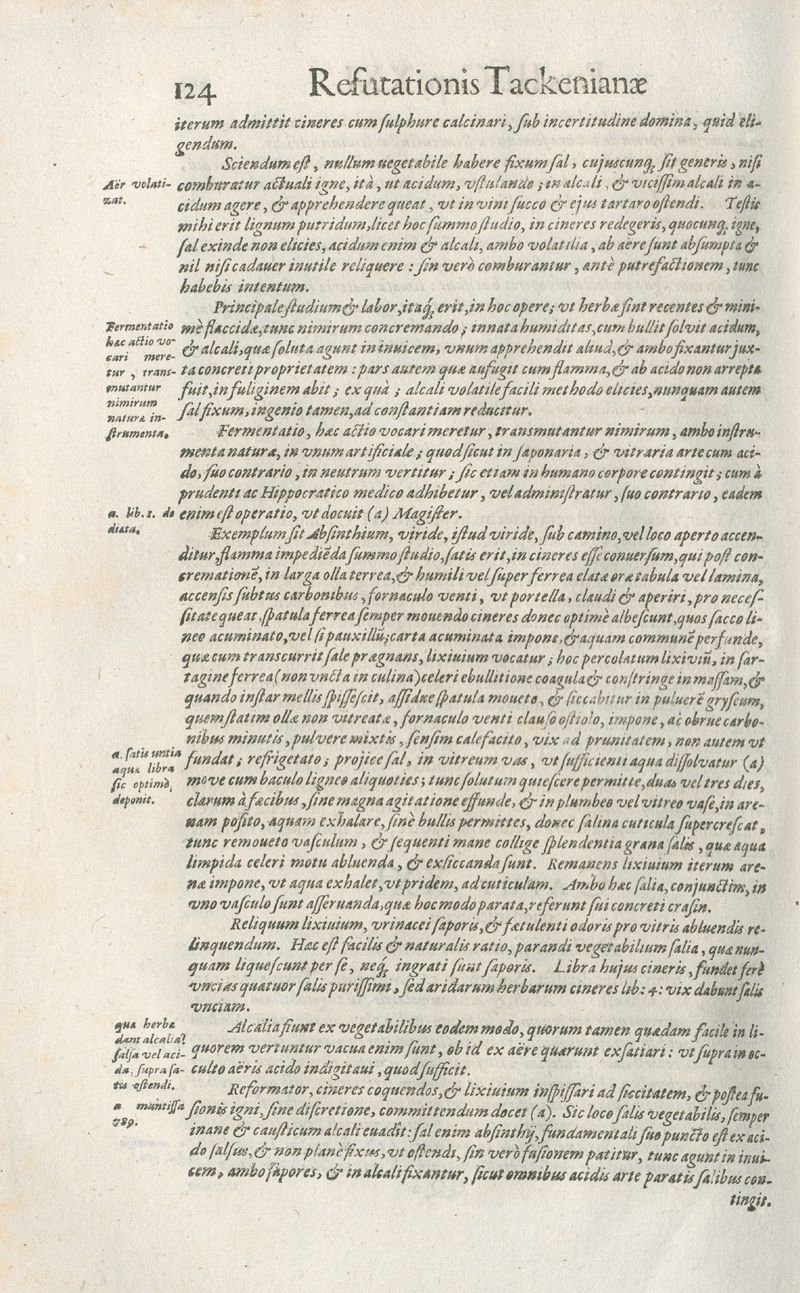 124 Refutationis Tackenianæ
iterum admittit cineres cum ſulphure calcinari, ſub incertitudine domina, quid eli-
gendum.
Sciendum eſt, nullum uegetabile habere fixum ſal, cujuscunq; ſit generis, niſi
Aër volati-
zat.
comburatur actuali igne, itâ, ut acidum, vſtulando; in alcali, & viciſſim alcali in a-
cidum agere, & apprehendere queat, vt in vini ſucco & ejus tartaro oſtendi. Teſtis
mihi erit lignum putridum, licet hoc ſummo ſtudio, in cineres redegeris, quocunq; igne,
ſal exinde non elicies, acidum enim & alcali, ambo volatilia, ab aëre ſunt abſumpta &
nil niſi cadauer inutile reliquere: ſin verò comburantur, antè putrefactionem, tunc
habebis intentum.
Principale ſtudium & labor, itaq; erit, in hoc opere; vt herbæ ſint recentes & mini-
Fermentatio
hæc actio vo-
cari mere-
tur, trans-
mutantur
nimirum
naturæ in-
ſtrumenta.
mè flaccidæ, tunc nimirum concremando; innata humiditas, cum bullit ſolvit acidum,
& alcali, quæ ſoluta agunt in inuicem, vnum apprehendit aliud, & ambo fixantur jux-
ta concreti proprietatem: pars autem quæ aufugit cum flamma, & ab acido non arrepta
fuit, in fuliginem abit; ex quà; alcali volatile facili methodo elicies, nunquam autem
ſal fixum, ingenio tamen, ad conſtantiam reducitur.
Fermentatio, hæc actio vocari meretur, transmutantur nimirum, ambo inſtru-
menta naturæ, in vnum artificiale; quod ſicut in ſaponaria, & vitraria arte cum aci-
do, ſuo contrario, in neutrum vertitur; ſic etiam in humano corpore contingit; cum à
prudenti ac Hippocratico medico adhibetur, vel adminiſtratur, ſuo contrario, eadem
a. lib. 1. de
diæta.
enim eſt operatio, vt docuit (a) Magiſter.
Exemplum ſit Abſinthium, viride, iſtud viride, ſub camino, vel loco aperto accen-
ditur, flamma impediēda ſummo ſtudio, ſatis erit, in cineres eſſe conuerſum, qui poſt con-
crematione, in larga olla terrea, & humili vel ſuper ferrea elatæ oræ tabula vel lamina,
accenſis ſubtus carbonibus, fornaculo venti, vt portella, claudi & aperiri, pro neceſ-
ſitate queat, ſpatula ferrea ſemper mouendo cineres donec optimè albeſcunt, quos ſacco li-
neo acuminato, vel ſi pauxillū; carta acuminata impone, & aquam communē perfunde,
quæ cum transcurrit ſale prægnans, lixiuium vocatur; hoc percolatum lixiviū, in ſar-
tagine ferrea (non vncta in culina) celeri ebullitione coagula & conſtringe in maſſam, &
quando inſtar mellis ſpiſſeſcit, aſſiduè ſpatula moueto, & ſiccabitur in puluerē gryſeum,
quem ſtatim ollæ non vitreatæ, fornaculo venti clauſo oſtiolo, impone, ac obrue carbo-
nibus minutis, pulvere mixtis, ſenſim calefacito, vix ad prunitatem, non autem vt
a. ſatis untia
aquæ libra
ſic optimè,
deponit.
fundat; refrigetato; projice ſal, in vitreum vas, vt ſufficienti aqua diſſolvatur (a)
move cum baculo ligneo aliquoties; tunc ſolutum quieſcere permitte, duas vel tres dies,
clarum à fæcibus, ſine magna agitatione effunde, & in plumbeo vel vitreo vaſe, in are-
nam poſito, aquam exhalare, ſinè bullis permittes, donec ſalina cuticula ſupercreſcat,
tunc remoueto vaſculum, & ſequenti mane collige ſplendentia grana ſalis, quæ aqua
limpida celeri motu abluenda, & exſiccanda ſunt. Remanens lixiuium iterum are-
næ impone, vt aqua exhalet, vt pridem, ad cuticulam. Ambo hæc ſalia, conjunctim, in
vno vaſculo ſunt aſſeruanda, quæ hoc modo parata, referunt ſui concreti craſin.
Reliquum lixiuium, vrinacei ſaporis, & fætulenti odoris pro vitris abluendis re-
linquendum. Hæc eſt facilis & naturalis ratio, parandi vegetabilium ſalia, quæ nun-
quam liqueſcunt per ſe, neq; ingrati ſunt ſaporis. Libra hujus cineris, fundet ferè
vncias quatuor ſalis puriſſimi, ſed aridarum herbarum cineres lib: 4: vix dabunt ſalis
vnciam.
quæ herbæ
dant alcalia?
ſalſa vel aci-
da, ſupra ſa-
tis oſtendi.
Alcalia fiunt ex vegetabilibus eodem modo, quorum tamen quædam facile in li-
quorem vertuntur vacua enim ſunt, ob id ex aëre quærunt exſatiari: vt ſupra in oc-
culto aëris acido indigitaui, quod ſufficit.
Reformator, cineres coquendos, & lixiuium inſpiſſari ad ſiccitatem, & poſtea fu-
a mantiſſa
789.
ſionis igni, ſine diſcretione, committendum docet (a). Sic loco ſalis vegetabilis, ſemper
inane & cauſticum alcali euadit: ſal enim abſinthij, fundamentali ſuo puncto eſt ex aci-
do ſalſus, & non planè fixus, vt oſtendi, ſin verò fuſionem patitur, tunc agunt in inui-
cem, ambo ſapores, & in alcali fixantur, ſicut omnibus acidis arte paratis ſalibus con-
tingit.